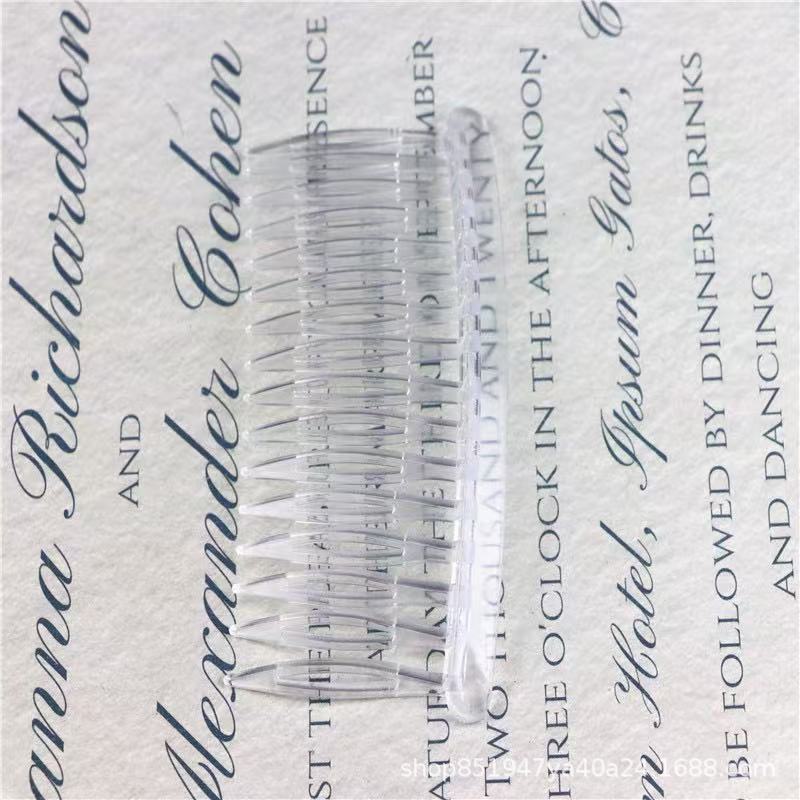 anna Richardson
AND
Alexander Cohen
ST THE SENCE
ATURDAY THE THIRD MBER
TWO THOUSAND AND TWENTY
HREE O'CLOCK IN THE AFTERNOON
m Hotel, Ipsum Gatos, C
BE FOLLOWED BY DINNER, DRINKS
AND DANCING
shop851947ya40a24.1688.com